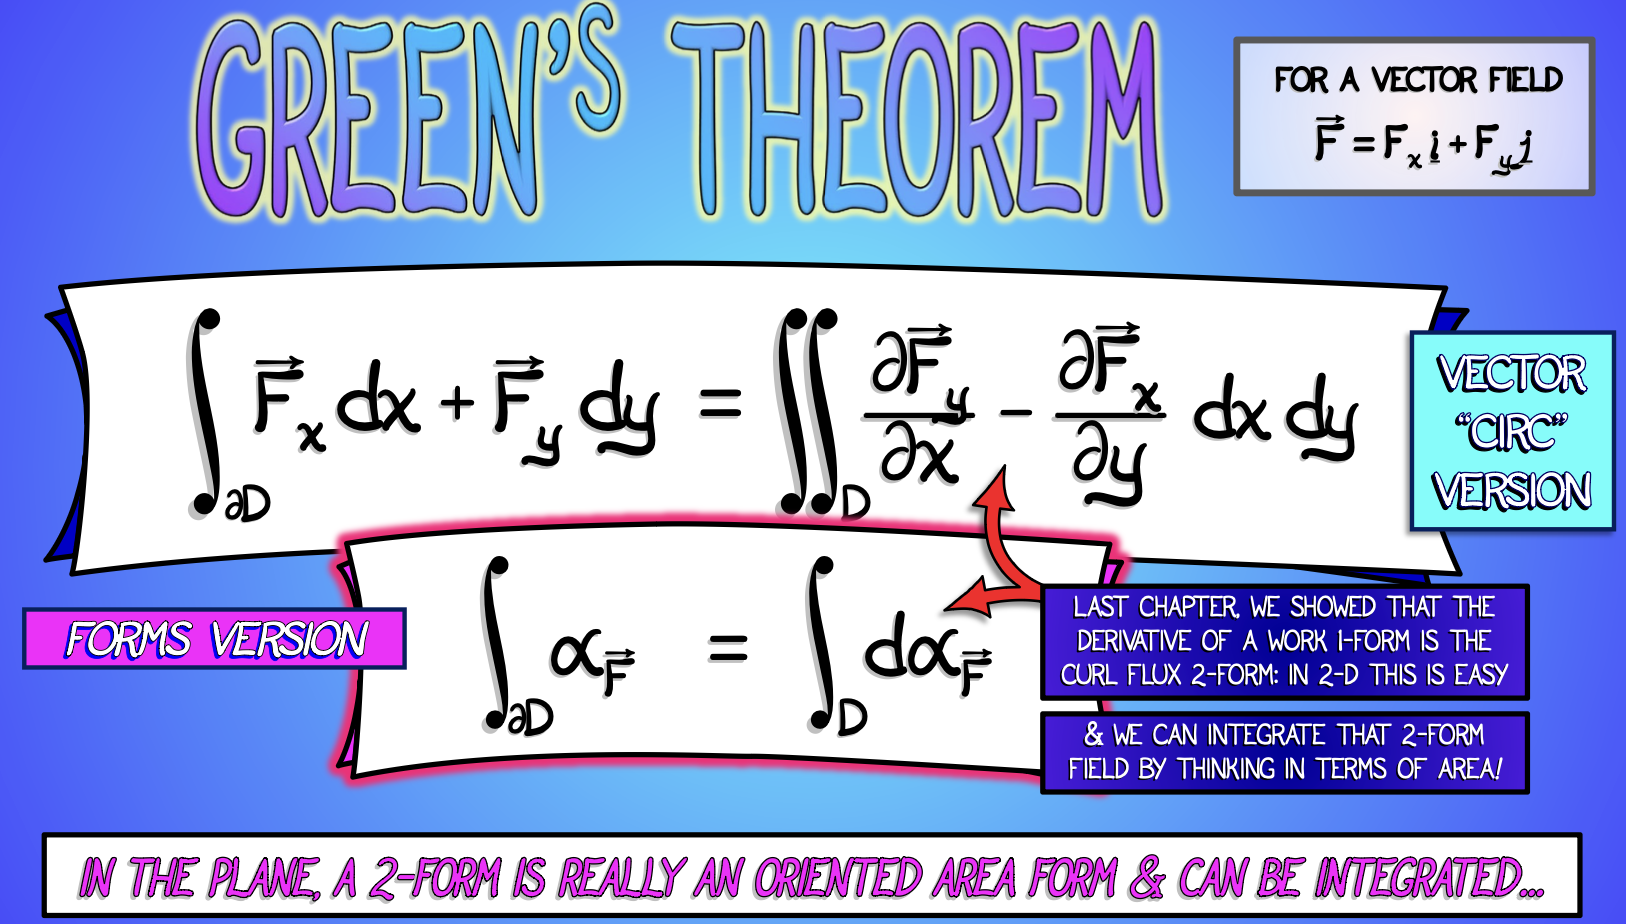 GREEN'S THEOREM
FOR A VECTOR FIELD
F⃗ = Fₓ i + F_y j
∫_∂D F⃗ₓ dx + F⃗_y dy = ∬_D ∂F⃗_y/∂x − ∂F⃗ₓ/∂y dx dy
VECTOR
“CIRC”
VERSION
FORMS VERSION
∫_∂D α_F⃗ = ∫_D dα_F⃗
LAST CHAPTER, WE SHOWED THAT THE
DERIVATIVE OF A WORK 1-FORM IS THE
CURL FLUX 2-FORM: IN 2-D THIS IS EASY
& WE CAN INTEGRATE THAT 2-FORM
FIELD BY THINKING IN TERMS OF AREA!
IN THE PLANE, A 2-FORM IS REALLY AN ORIENTED AREA FORM & CAN BE INTEGRATED...